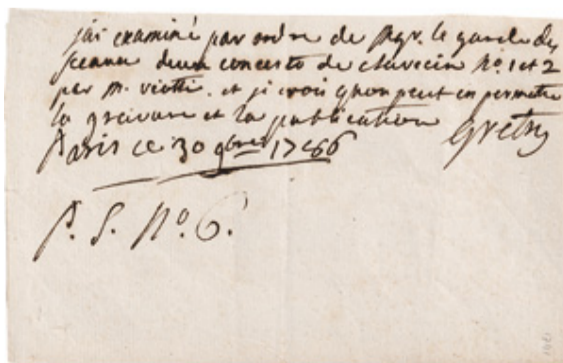 jai examiné par ordre de Mgr. le garde des
sceaux deux concerto de clavecin No. 1 et 2
par m. viotti. et je crois qu'on peut en permettre
la gravure et la publication
Gretry
Paris ce 30 9bre 1786
P. S. No. 6.